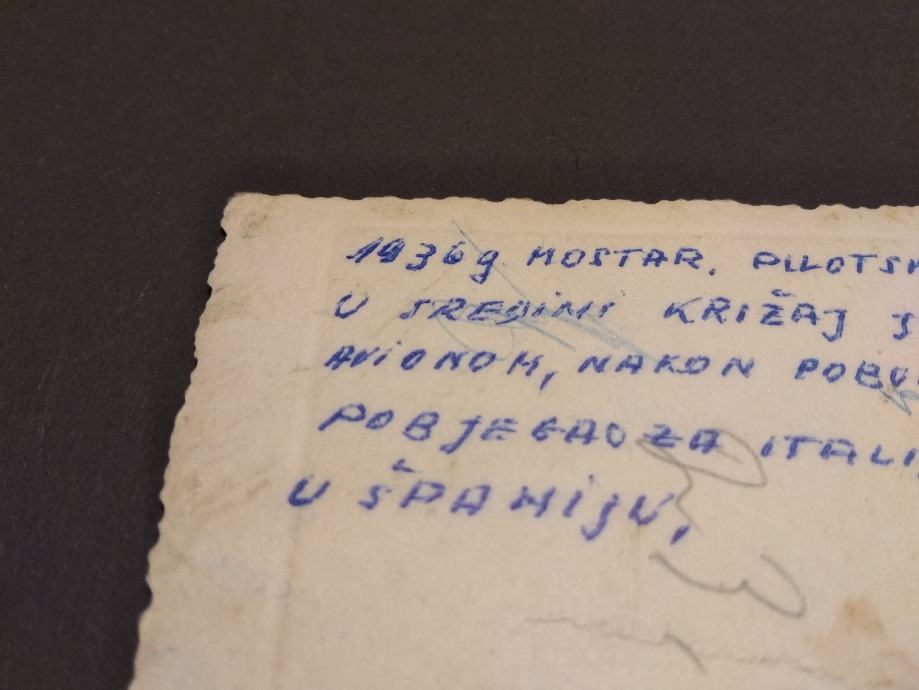 1936g MOSTAR. PILOTSK
U SREDINI KRIŽAJ J
AVIONOM, NAKON POBU
POBJEGAO ZA ITALI
U ŠPANIJU,